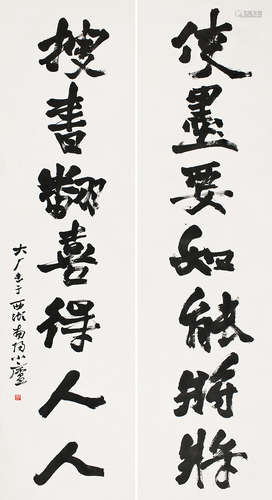 使墨要如能將將
搜書翻喜得人人
大厂書于西湖南陽小廬